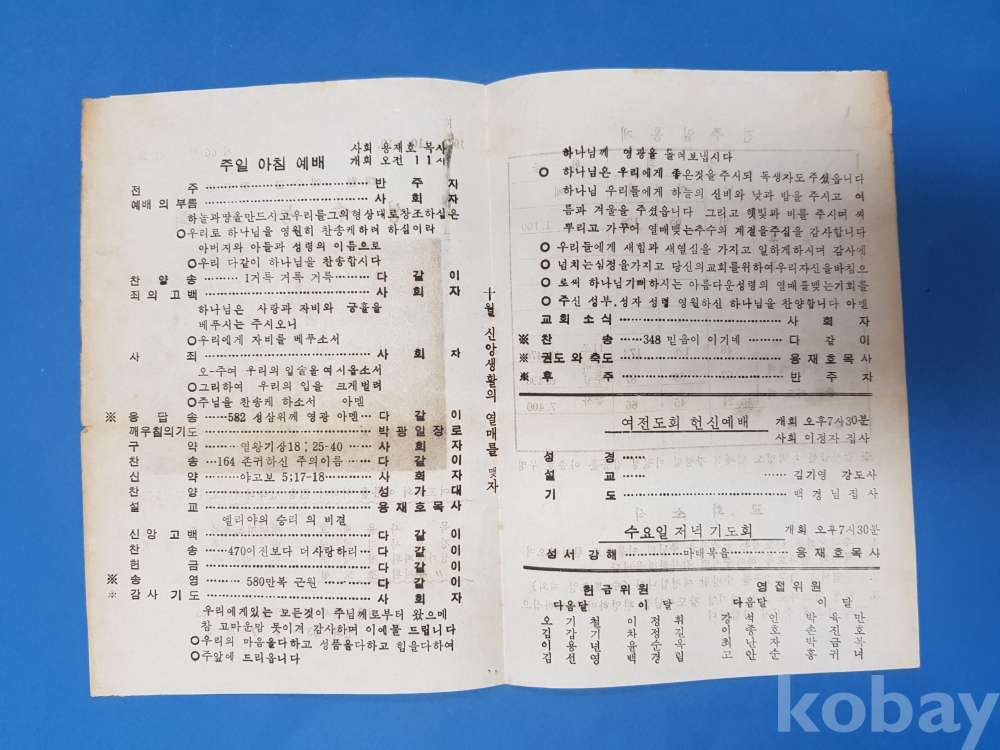 사회 용재호 목사
주일 아침 예배 개회 오전 11시
전 주 반 주 자
예배의부름 사 회 자
하늘과땅을만드시고우리를그의형상대로창조하실은
○우리로 하나님을 영원히 찬송케하려 하심이라
아버지와 아들과 성령의 이름으로
○우리 다같이 하나님을 찬송합시다
찬 양 송 1거룩 거룩 거룩 다 같 이
죄의고백 사 회 자
하나님은 사랑과 자비와 궁휼을
베푸시는 주시오니
○우리에게 자비를 베푸소서
사 죄 사 회 자
오-주여 우리의 입술을 여시옵소서
○그리하여 우리의 입을 크게벌려
○주님을 찬송케 하소서 아멘
※ 응 답 송 582 성삼위께 영광 아멘 다 같 이
깨우침의기도 박광일장로
구 약 열왕기상18:25-40 사 회 자
찬 송 164 존귀하신 주의이름 다 같 이
신 약 야고보 5;17-18 사 회 자
찬 양 성 가 대
설 교 용재호목사
엘리야의 승리 의 비결
신앙고백 다 같 이
찬 송 470이전보다 더사랑하리 다 같 이
헌 금 다 같 이
※ 송 영 580만복 근원 다 같 이
※ 감사기도 사 회 자
우리에게있는 모든것이 주님께로부터 왔으메
참 고마운맘 못이겨 감사하며 이예물 드립니다
○우리의 마음을다하고 성품을다하고 힘을다하여
○주앞에 드리옵니다
十월 신앙생활의 열매를 맺자
하나님께 영광을 돌려보냅시다
○ 하나님은 우리에게 좋은것을 주시되 독생자도주셨읍니다
하나님 우리들에게 하늘의 신비와 낮과 밤을 주시고 여
름과 겨울을 주셨읍니다 그리고 햇빛과 비를 주시며 씨
뿌리고 가꾸어 열매맺는추수의 계절을주심을 감사합니다
○ 우리들에게 새힘과 새열심을 가지고 일하게하시며 감사에
○ 넘치는심정을가지고 당신의교회를위하여우리자신을바침으
○ 로써 하나님기뻐하시는 아름다운성령의 열매를맺는기회를
○ 주신 성부.성자 성령 영원하신 하나님을 찬양합니다 아멘
교회소식 사 회 자
※ 찬 송 348 믿음이 이기네 다 같 이
※ 권도와축도 용재호목사
※ 후 주 반 주 자
여전도회 헌신예배 개회 오후7시30분
사회 이정자 집사
성 경
설 교 김기영 강도사
기 도 백경님집사
수요일 저녁 기도회 개회 오후7시30분
성서강해 마태복음 용재호목사
헌금위원 영접위원
다음달 이 달 다음달 이 달
오기철 이정휘 강석인 박옥만
김강기 차정길 이종호 손진호
이용년 윤순옥 최난자 박금복
김선영 백경림 고안순 홍귀녀
kobay